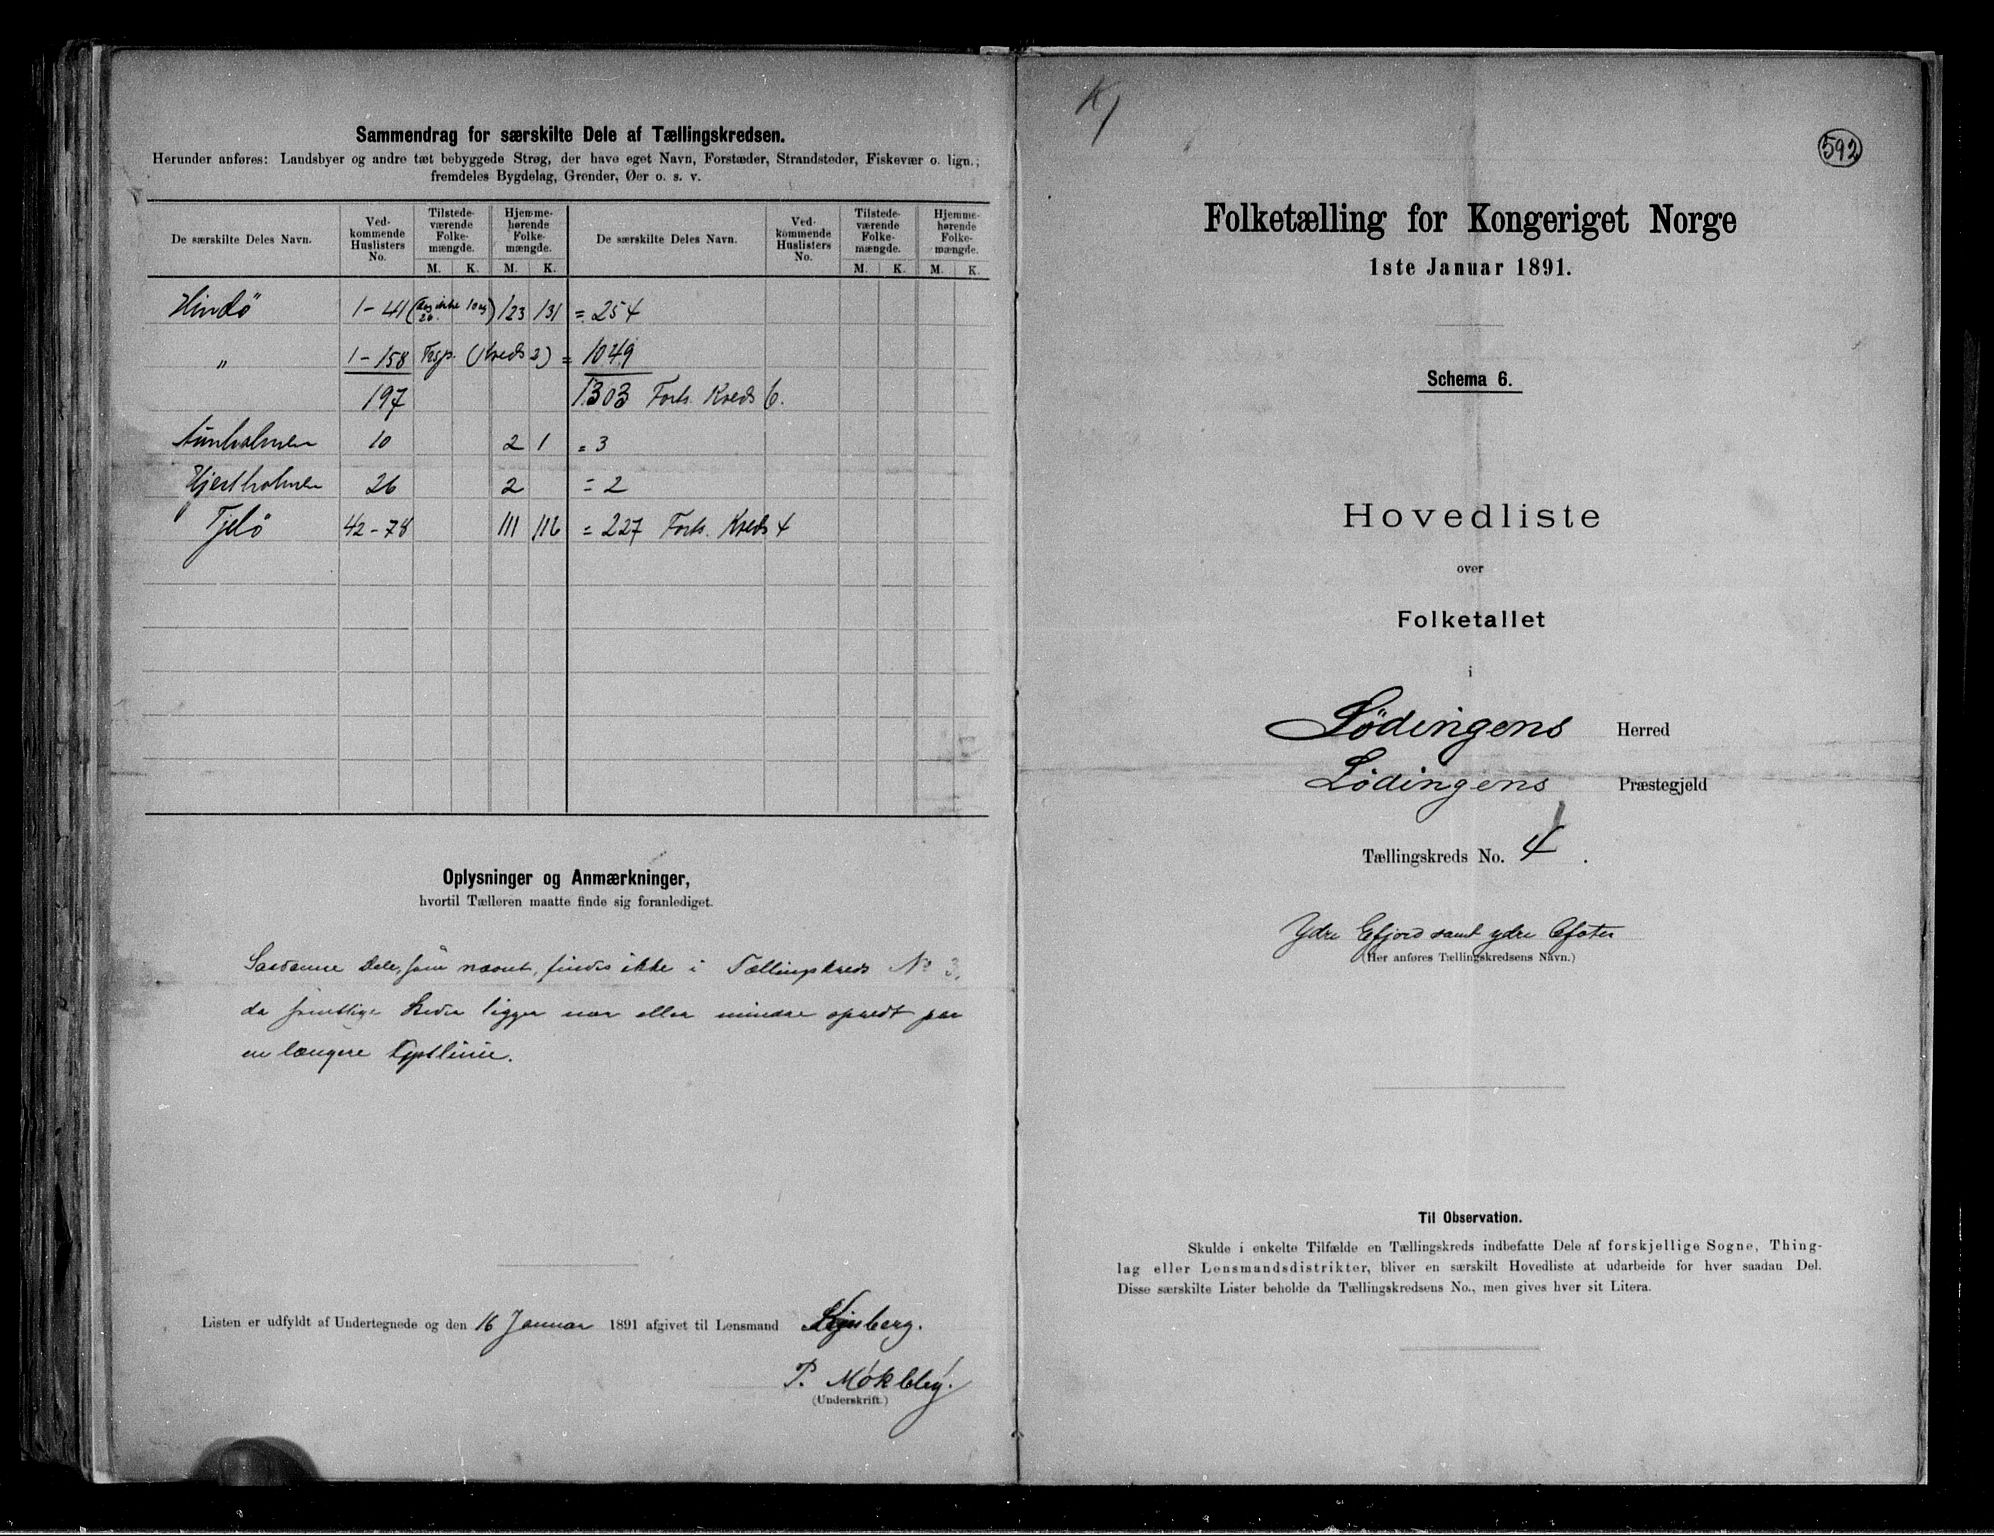 Sammendrag for særskilte Dele af Tællingskredsen.
Herunder anføres: Landsbyer og andre tæt bebyggede Strøg, der have eget Navn, Forstæder, Strandsteder, Fiskevær o. lign.;
fremdeles Bygdelag, Grender, Øer o. s. v.
De særskilte Deles Navn. Ved-kommende Huslisters No. Tilstede-værende Folke-mængde. Hjemme-hørende Folke-mængde. De særskilte Deles Navn. Ved-kommende Huslisters No. Tilstede-værende Folke-mængde. Hjemme-hørende Folke-mængde.
M. K. M. K. M. K. M. K.
Hindö 1-41 123 131 = 254
" 1-158 (Kreds 2) = 1049
197 1303 Forts. Kreds 6.
10 2 1 = 3
Hjertholmen 26 2 = 2
Tjelö 42-78 111 116 = 227 Forts. Kreds 4
Oplysninger og Anmærkninger,
hvortil Tælleren maatte finde sig foranlediget.
Saadanne Dele, som nævnt, findes ikke i Tællingskreds No 3,
da samtlige Steder ligger mer eller mindre spredt paa
en længere Kystlinie.
Listen er udfyldt af Undertegnede og den 16 Januar 1891 afgivet til Lensmand
P. Møkleby.
(Underskrift.)
K/
592
Folketælling for Kongeriget Norge
1ste Januar 1891.
Schema 6.
Hovedliste
over
Folketallet
i
Lödingens Herred
Lödingens Præstegjeld
Tællingskreds No. 4.
Ydre Efjord samt ydre Ofoten
(Her anføres Tællingskredsens Navn.)
Til Observation.
Skulde i enkelte Tilfælde en Tællingskreds indbefatte Dele af forskjellige Sogne, Thing-
lag eller Lensmandsdistrikter, bliver en særskilt Hovedliste at udarbeide for hver saadan Del.
Disse særskilte Lister beholde da Tællingskredsens No., men gives hver sit Litera.